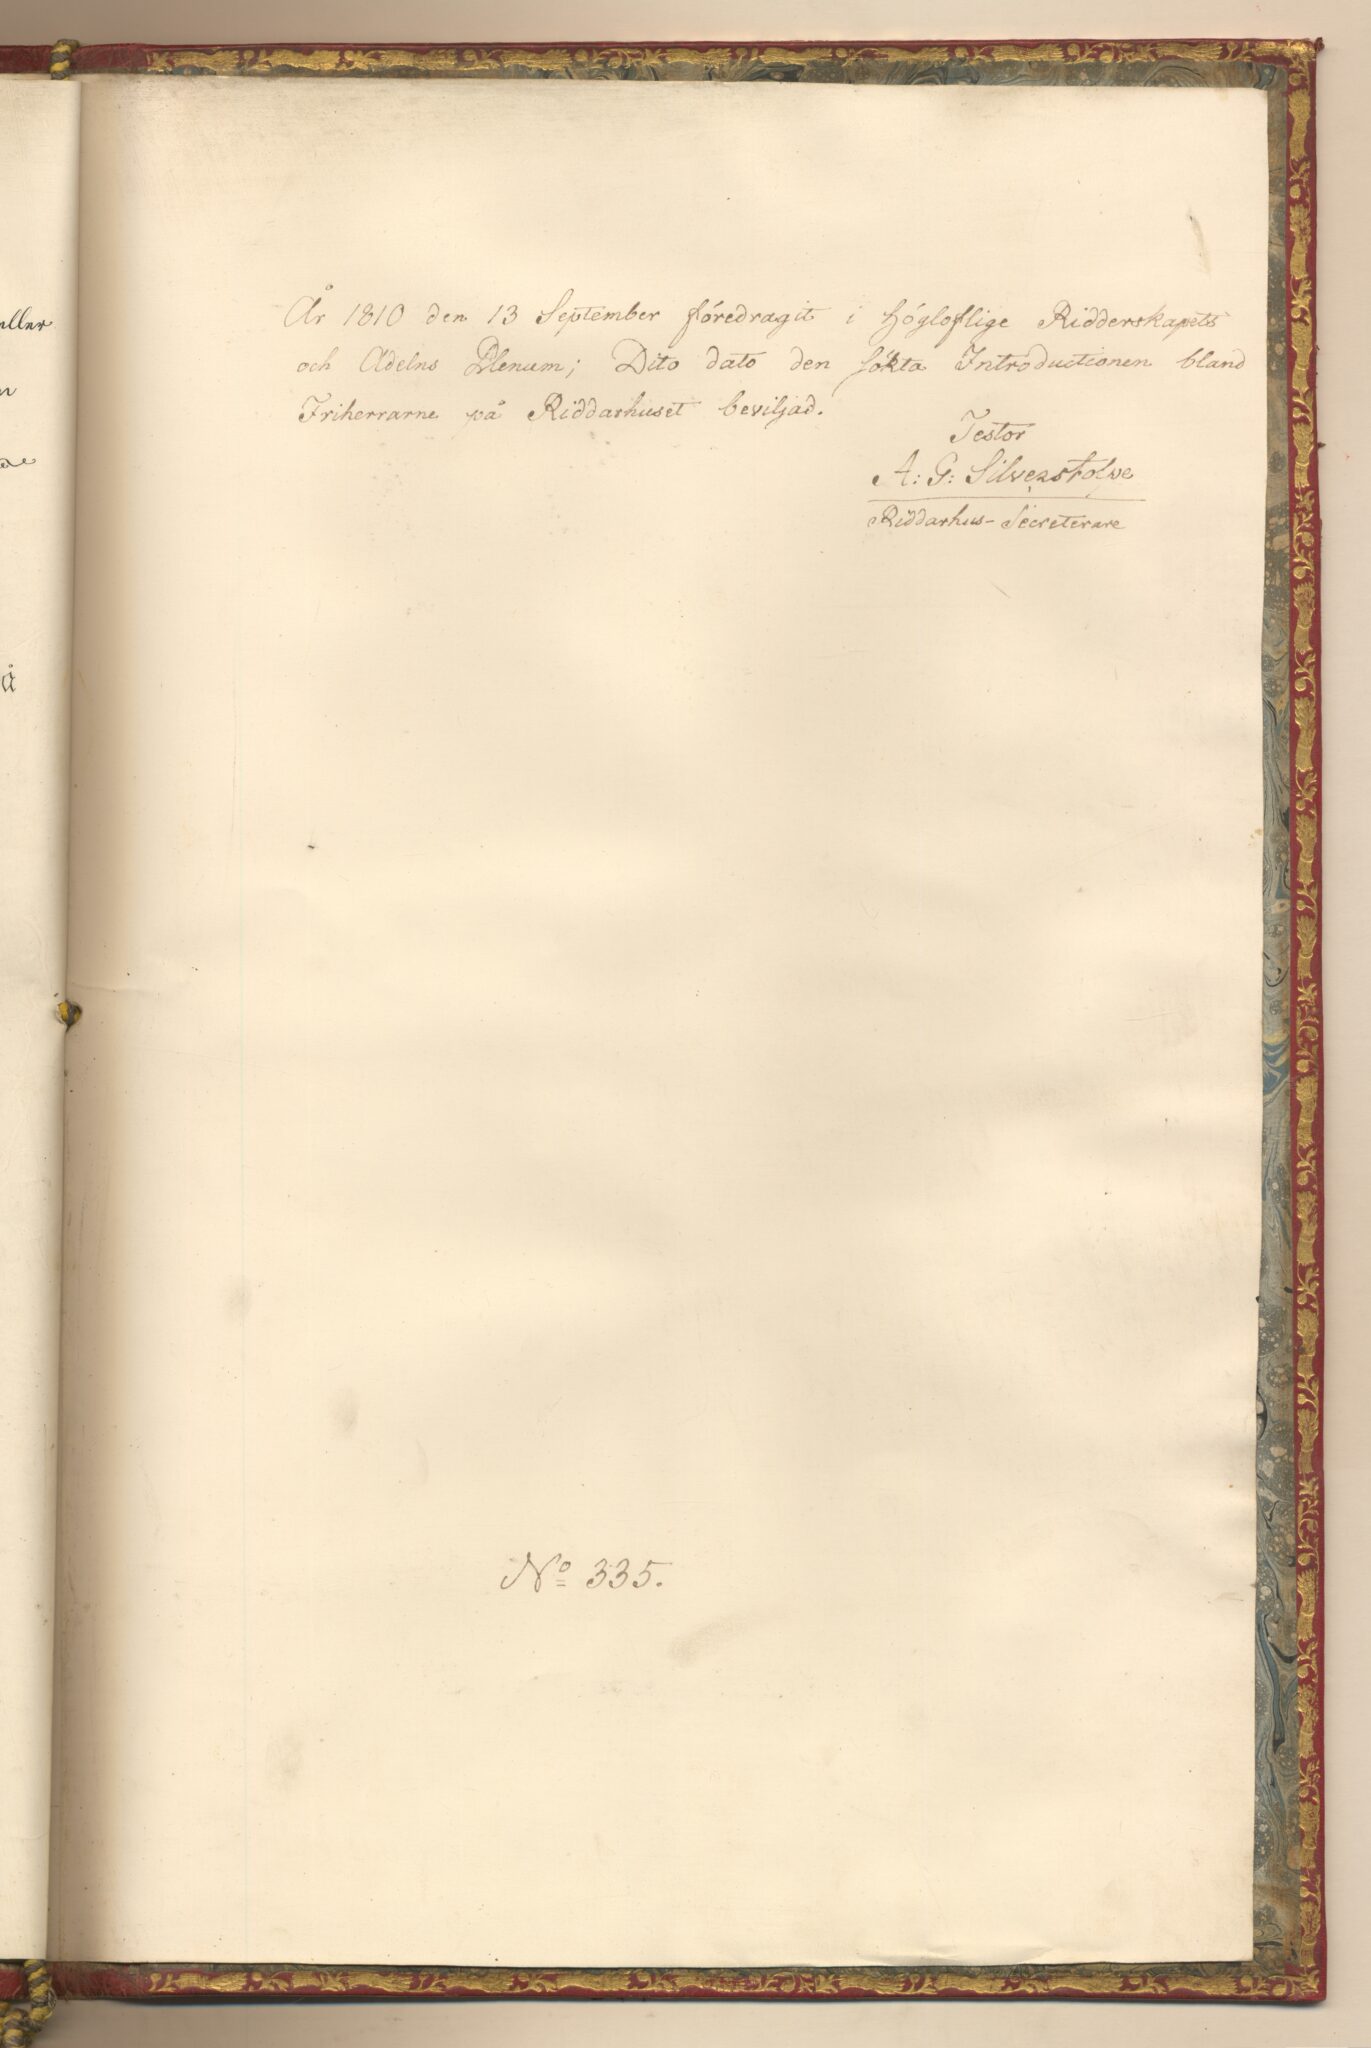 År 1810 den 13 September föredragit i Högloflige Ridderskapets
och Adelns Plenum; Dito dato den sökta Introductionen bland
Friherrarne på Riddarhuset beviljad.
Testor
A: G: Silverstolpe
Riddarhus-Secreterare
No 335.